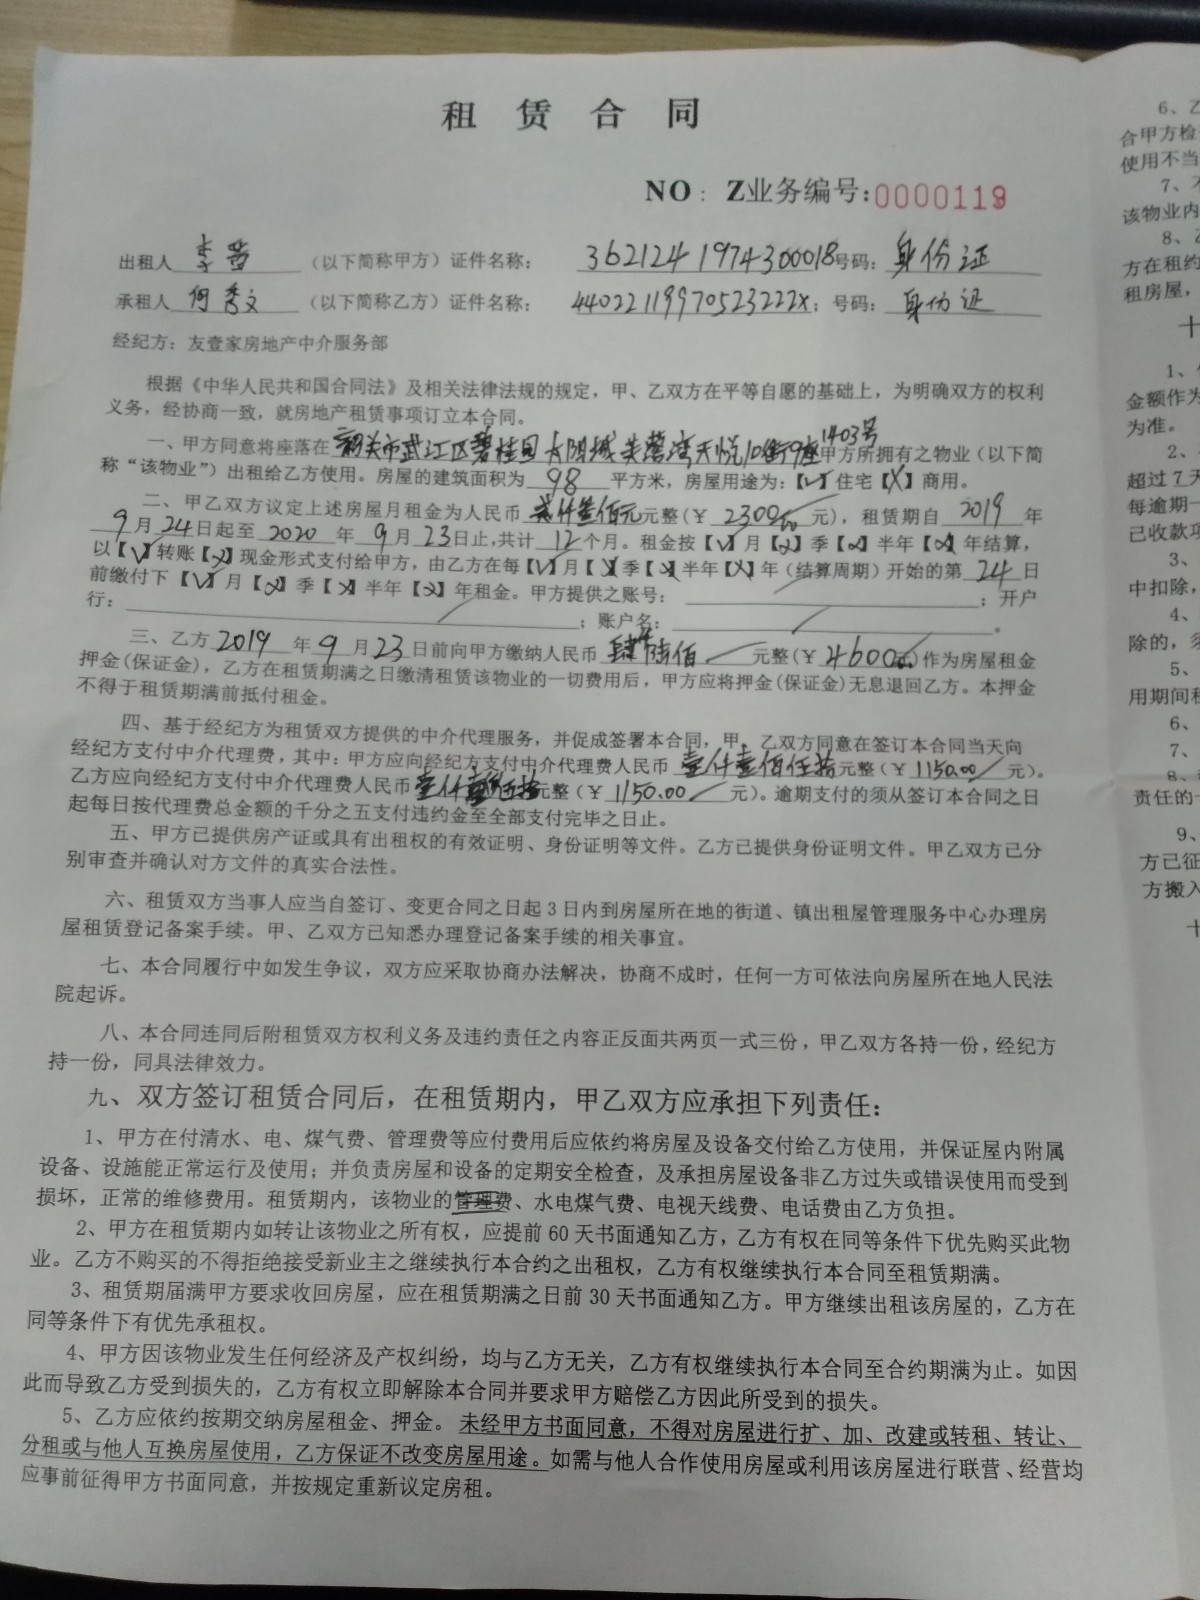 租赁合同
NO：Z业务编号:0000119
出租人 李茵 （以下简称甲方）证件名称： 362124197430018号码：身份证
承租人 何秀文 （以下简称乙方）证件名称： 44022119970523222X；号码：身份证
经纪方：友壹家房地产中介服务部
根据《中华人民共和国合同法》及相关法律法规的规定，甲、乙双方在平等自愿的基础上，为明确双方的权利
义务，经协商一致，就房地产租赁事项订立本合同。
一、甲方同意将座落在 韶关市武江区碧桂园太阳城芙蓉湾天悦10街9座1403号 甲方所拥有之物业（以下简
称“该物业”）出租给乙方使用。房屋的建筑面积为 98 平方米，房屋用途为：【√】住宅【X】商用。
二、甲乙双方议定上述房屋月租金为人民币 贰仟叁佰元 元整（¥ 2300.00 元），租赁期自 2019 年
9 月 24 日起至 2020 年 9 月 23 日止，共计 12 个月。租金按【√】月【X】季【X】半年【X】年结算，
以【√】转账【X】现金形式支付给甲方，由乙方在每【√】月【X】季【X】半年【X】年（结算周期）开始的第 24 日
前缴付下【√】月【X】季【X】半年【X】年租金。甲方提供之账号： ；开户
行： ；账户名： 。
三、乙方 2019 年 9 月 23 日前向甲方缴纳人民币 肆仟陆佰 元整（¥ 4600.00）作为房屋租金
押金(保证金)，乙方在租赁期满之日缴清租赁该物业的一切费用后，甲方应将押金(保证金)无息退回乙方。本押金
不得于租赁期满前抵付租金。
四、基于经纪方为租赁双方提供的中介代理服务，并促成签署本合同，甲、乙双方同意在签订本合同当天向
经纪方支付中介代理费，其中：甲方应向经纪方支付中介代理费人民币 壹仟壹佰伍拾 元整（¥ 1150.00 元）。
乙方应向经纪方支付中介代理费人民币 壹仟壹佰伍拾 元整（¥ 1150.00 元）。逾期支付的须从签订本合同之日
起每日按代理费总金额的千分之五支付违约金至全部支付完毕之日止。
五、甲方已提供房产证或具有出租权的有效证明、身份证明等文件。乙方已提供身份证明文件。甲乙双方已分
别审查并确认对方文件的真实合法性。
六、租赁双方当事人应当自签订、变更合同之日起 3 日内到房屋所在地的街道、镇出租屋管理服务中心办理房
屋租赁登记备案手续。甲、乙双方已知悉办理登记备案手续的相关事宜。
七、本合同履行中如发生争议，双方应采取协商办法解决，协商不成时，任何一方可依法向房屋所在地人民法
院起诉。
八、本合同连同后附租赁双方权利义务及违约责任之内容正反面共两页一式三份，甲乙双方各持一份，经纪方
持一份，同具法律效力。
九、双方签订租赁合同后，在租赁期内，甲乙双方应承担下列责任：
1、甲方在付清水、电、煤气费、管理费等应付费用后应依约将房屋及设备交付给乙方使用，并保证屋内附属
设备、设施能正常运行及使用；并负责房屋和设备的定期安全检查，及承担房屋设备非乙方过失或错误使用而受到
损坏，正常的维修费用。租赁期内，该物业的管理费、水电煤气费、电视天线费、电话费由乙方负担。
2、甲方在租赁期内如转让该物业之所有权，应提前 60 天书面通知乙方，乙方有权在同等条件下优先购买此物
业。乙方不购买的不得拒绝接受新业主之继续执行本合约之出租权，乙方有权继续执行本合同至租赁期满。
3、租赁期届满甲方要求收回房屋，应在租赁期满之日前 30 天书面通知乙方。甲方继续出租该房屋的，乙方在
同等条件下有优先承租权。
4、甲方因该物业发生任何经济及产权纠纷，均与乙方无关，乙方有权继续执行本合同至合约期满为止。如因
此而导致乙方受到损失的，乙方有权立即解除本合同并要求甲方赔偿乙方因此所受到的损失。
5、乙方应依约按期交纳房屋租金、押金。未经甲方书面同意，不得对房屋进行扩、加、改建或转租、转让、
分租或与他人互换房屋使用，乙方保证不改变房屋用途。如需与他人合作使用房屋或利用该房屋进行联营、经营均
应事前征得甲方书面同意，并按规定重新议定房租。
6、乙
合甲方检
使用不当
7、不
该物业内
8、乙
方在租约
租房屋，
十
1、
金额作为
为准。
2、
超过 7 天
每逾期一
已收款项
3、
中扣除，
4、
除的，须
5、
用期间租
6、
7、
8、
责任的一
9、
方已征
方搬入
十